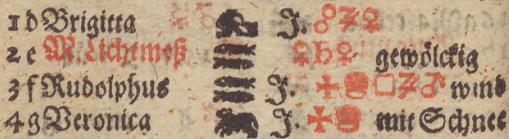 1 d Brigitta J. ☍♂♃♀
2 e M. Lichtmeß ♀♄♀ gewölckig
3 f Rudolphus J. ✢ □♃♂ wind
4 g Veronica J. ✢ mit Schnee